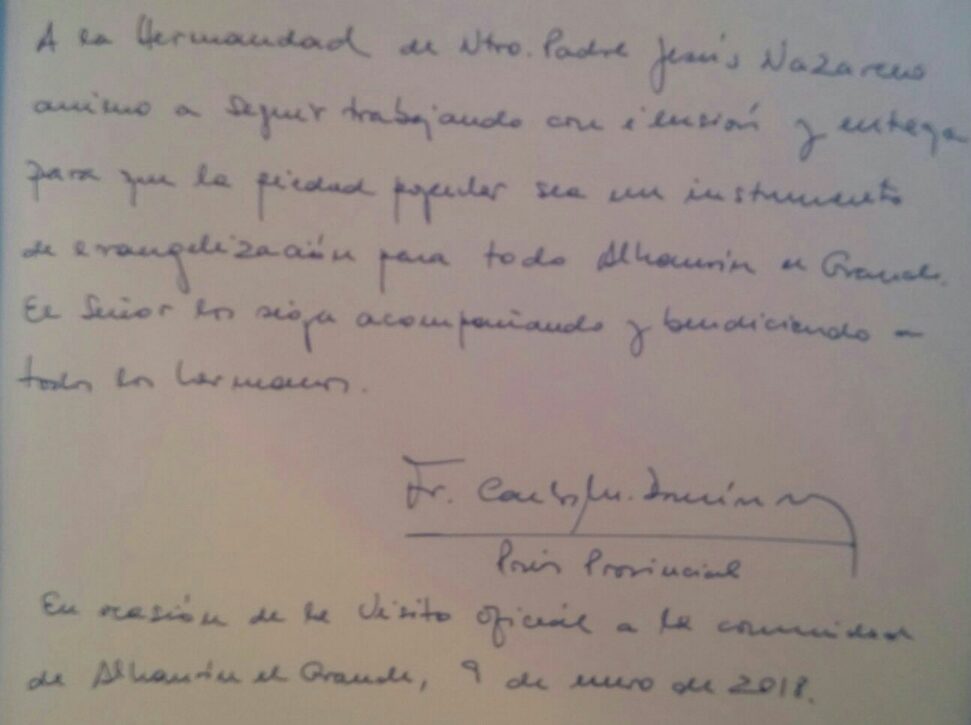 A la Hermandad de Ntro. Padre Jesús Nazareno
animo a seguir trabajando con ilusión y entrega
para que la piedad popular sea un instrumento
de evangelización para todo Alhaurín el Grande.
El Señor los siga acompañando y bendiciendo a
todos los hermanos.
Fr. Carlos M. Domínguez
Prior Provincial
En ocasión de la Visita oficial a la comunidad
de Alhaurín el Grande, 9 de enero de 2018.